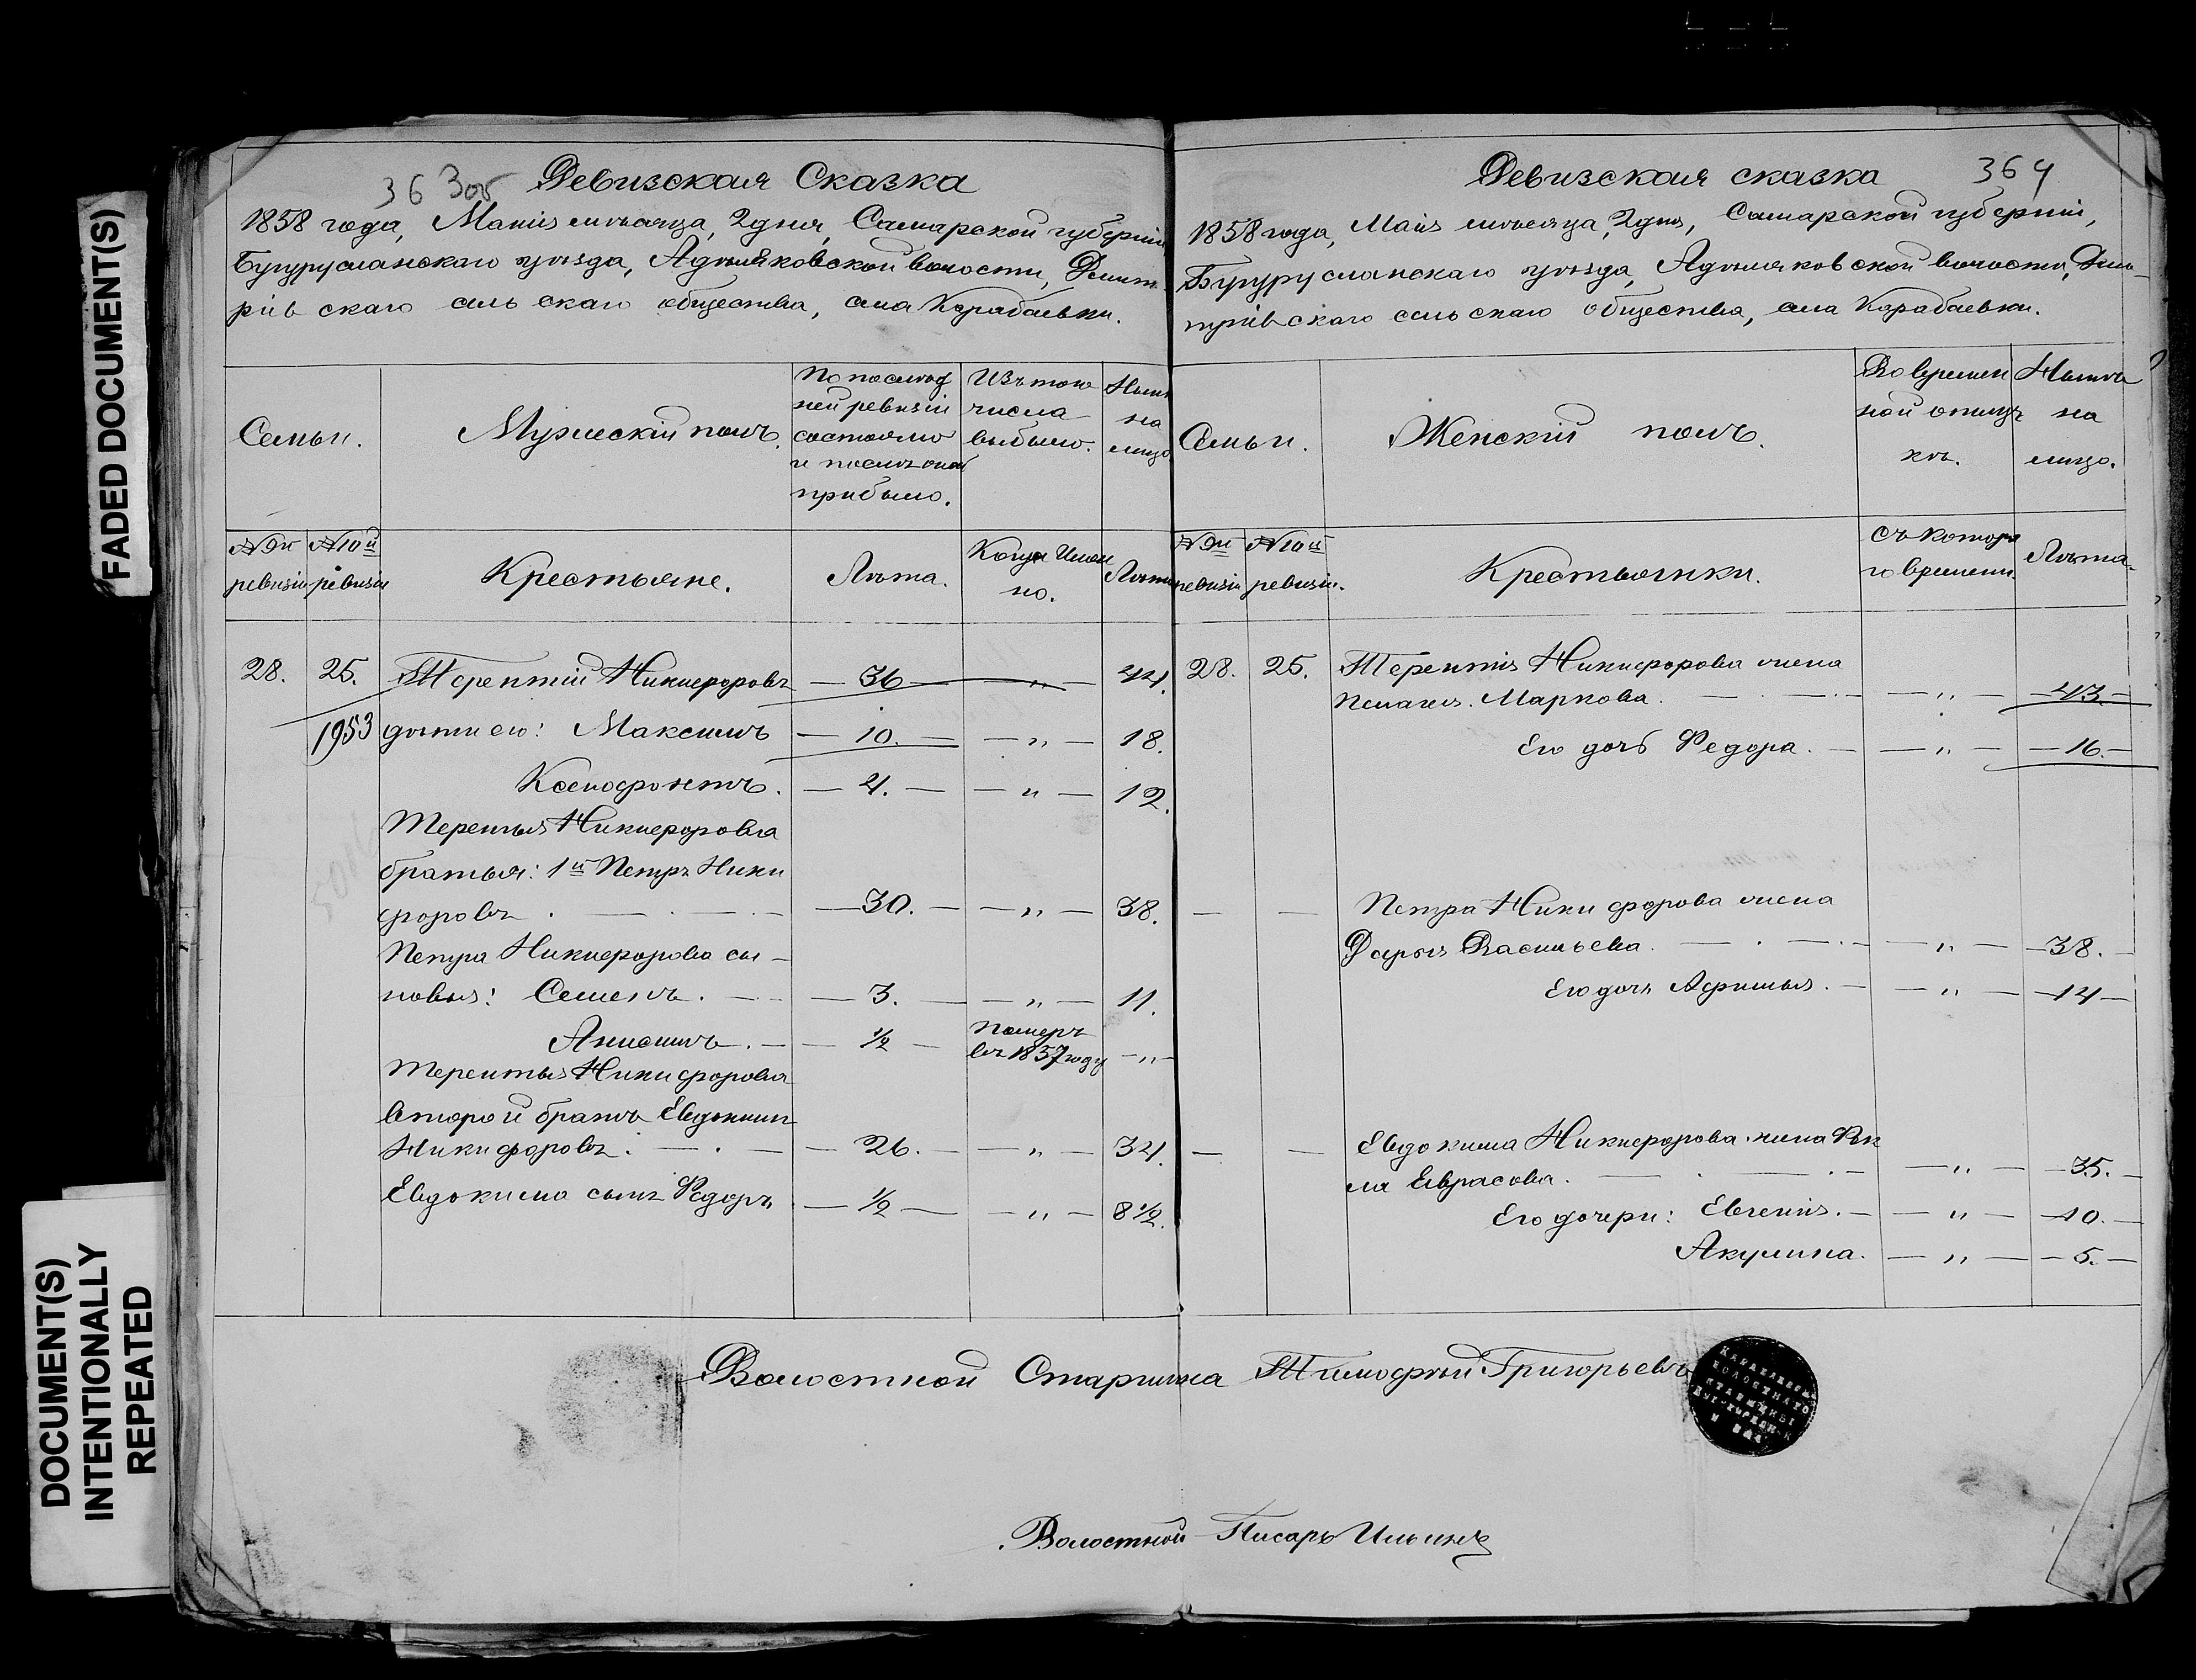 FADED DOCUMENT(S)
DOCUMENT(S)
INTENTIONALLY
REPEATED
363об
Ревизская Сказка
1858 года, Маия мѣсяца, 2 дня, Самарской губерніи,
Бугурусланскаго уѣзда, Волости, Дмит-
ріевскаго сельскаго общества, села Карабаевки.
Семьи.
Мужескій полъ.
По послѣд
ней ревизіи
состояло
и послѣ оной
прибыло.
Изъ того
числа
выбыло.
Нынѣ
на
лицо
№ 9й
ревизіи
№ 10й
ревизіи
Крестьяне.
Лѣта.
Когда Имен
но.
Лѣта
28. 25. Терентій Никифоровъ — 36 — — „ — 44.
1953 дѣти его: Максимъ — 10. — — „ — 18.
Ксенофонтъ. — 4. — — „ — 12.
Терентья Никифорова
братья: 1й Петръ Ники
форовъ . — 30. — — „ — 38.
Петра Никифорова сы-
новья: Семенъ. — 3. — — „ — 11.
Анисимъ. — ½ — Померъ
въ 1857 году — „ —
Терентья Никифорова
второй братъ Евдокимъ
Никифоровъ. — 26. — — „ — 34.
Евдокима сынъ Федоръ — ½ — — „ — 8½.
364
Ревизская сказка
1858 года, Маія мѣсяца, 2 дня, Самарской губерніи,
Бугурусланскаго уѣзда, волости, Дми-
тріевскаго сельскаго общества, села Карабаевки.
Семьи.
Женскій полъ.
Во времен
ной отлуч
кѣ.
Нынѣ
на
лицо.
№ 9й
ревизіи
№ 10й
ревизіи.
Крестьянки.
Съ котора
го времени.
Лѣта.
28. 25. Терентія Никифорова жена
Пелагея Маркова. — „ — 43. —
Его дочь Федора. — — „ — 16. —
— — Петра Никифорова жена
Дарья Васильева. — „ — 38. —
Его дочь Афимья. — — „ — 14 —
— — Евдокима Никифорова жена Фек
ла — „ — 35. —
Его дочери: Евгенія. — — „ — 10. —
Акулина. — „ — 5. —
Волостной Старшина Тимофей Григорьевъ
Волостной Писарь Ильинъ